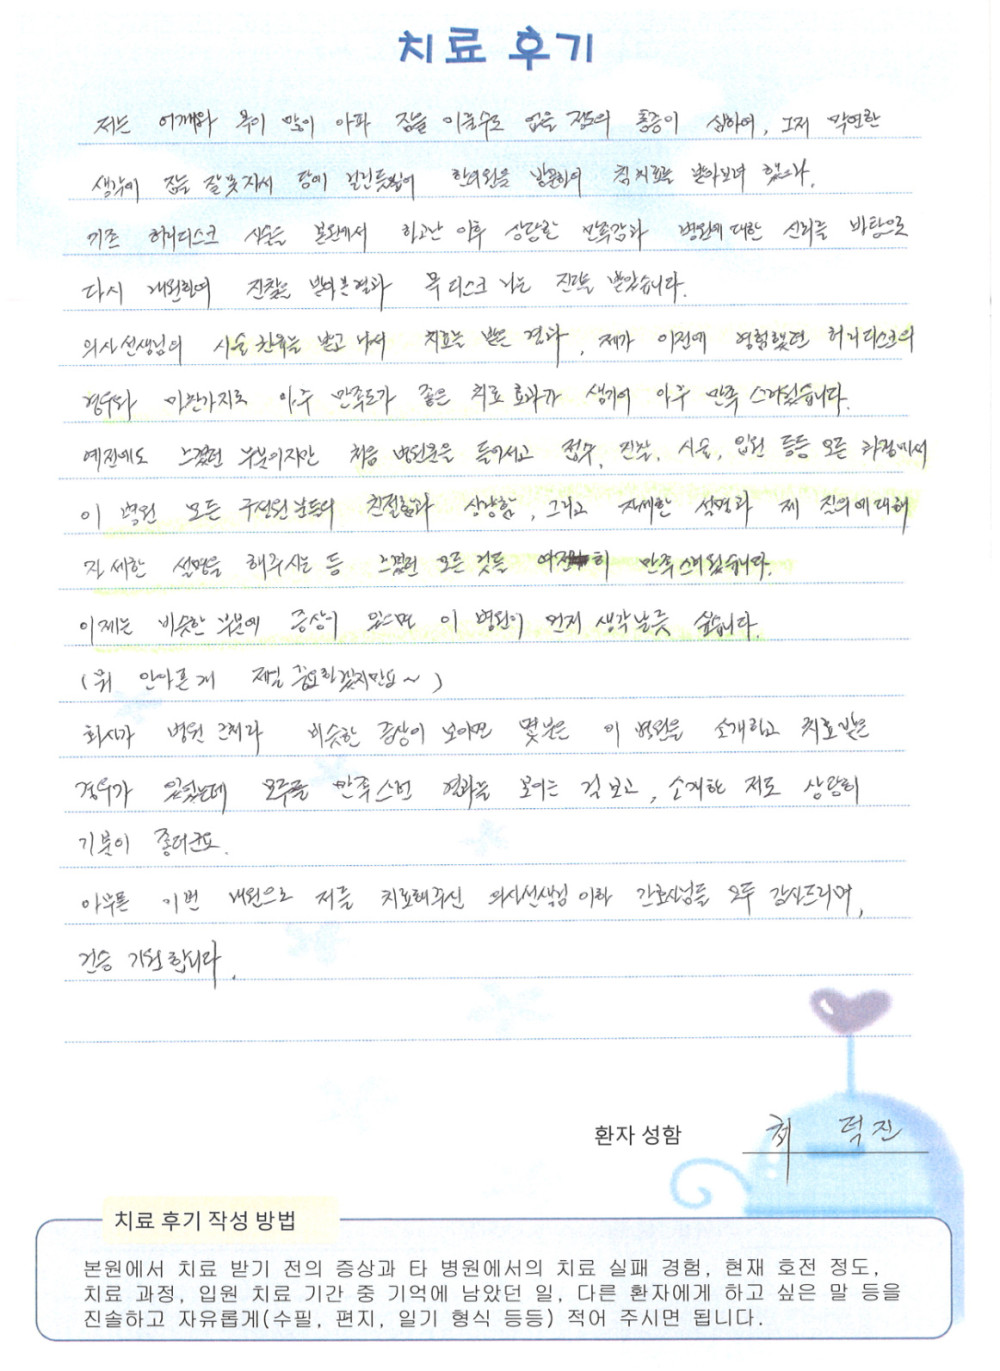 치료 후기
저는 어깨와 목이 많이 아파 잠을 이룰수도 없을 정도의 통증이 심하여, 그저 막연한
생각에 잠을 잘못자서 담이 걸린듯싶어 한의원을 방문하여 침치료를 받아보려 했으나,
기존 허리디스크 시술을 본원에서 하고난 이후 상당한 만족감과 병원에 대한 신뢰를 바탕으로
다시 내원하여 진찰을 받아본결과 목디스크 라는 진단을 받았습니다.
의사선생님의 시술 권유를 받고 나서 치료를 받은 결과, 제가 이전에 경험했던 허리디스크의
경우와 마찬가지로 아주 만족도가 좋은 치료효과가 생기어 아주 만족스러웠습니다.
예전에도 느꼈던 부분이지만 처음 병원문을 들어서고 접수, 진찰, 시술, 입원 등등 모든 과정에서
이 병원 모든 구성원분들의 친절함과 상냥함, 그리고 자세한 설명과 제 질의에대해
자세한 설명을 해주시는 등 느꼈던 모든 것들 여전히 만족스러웠습니다.
이제는 비슷한 부분에 증상이 있으면 이 병원이 먼저 생각날듯 싶습니다.
(뭐 안아픈게 제일 중요하겠지만요~)
회사가 병원 근처라 비슷한 증상이 보이면 몇분은 이 병원을 소개하고 치료받은
경우가 있었는데 모두들 만족스런 결과를 보이는 걸 보고, 소개한 저도 상당히
기분이 좋더군요.
아무튼 이번 내원으로 저를 치료해주신 의사선생님 이하 간호사님들 모두 감사드리며,
건승 기원합니다.
환자 성함 최 덕진
치료 후기 작성 방법
본원에서 치료 받기 전의 증상과 타 병원에서의 치료 실패 경험, 현재 호전 정도,
치료 과정, 입원 치료 기간 중 기억에 남았던 일, 다른 환자에게 하고 싶은 말 등을
진솔하고 자유롭게(수필, 편지, 일기 형식 등등) 적어 주시면 됩니다.